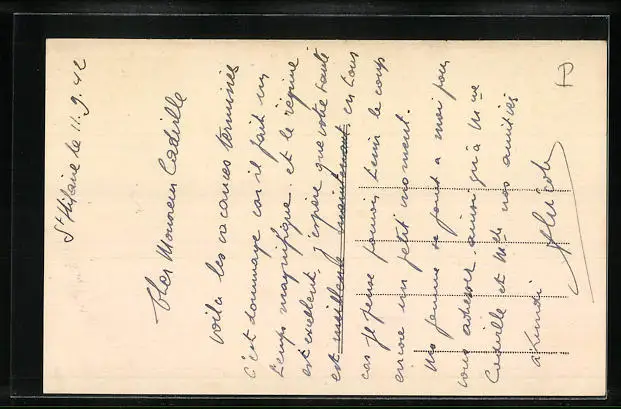 St Hilaire le 11.9.42
Cher Monsieur Cadville
Voilà les vacances terminées
C'est dommage car il fait un
temps magnifique et le régime
est excellent. J'espère que votre santé
est meilleure maintenant en tous
cas je pense pouvoir tenir le coup
encore un petit moment.
Ma femme se joint à moi pour
vous adresser ainsi qu'à Mme
Cadville et Melle nos amitiés